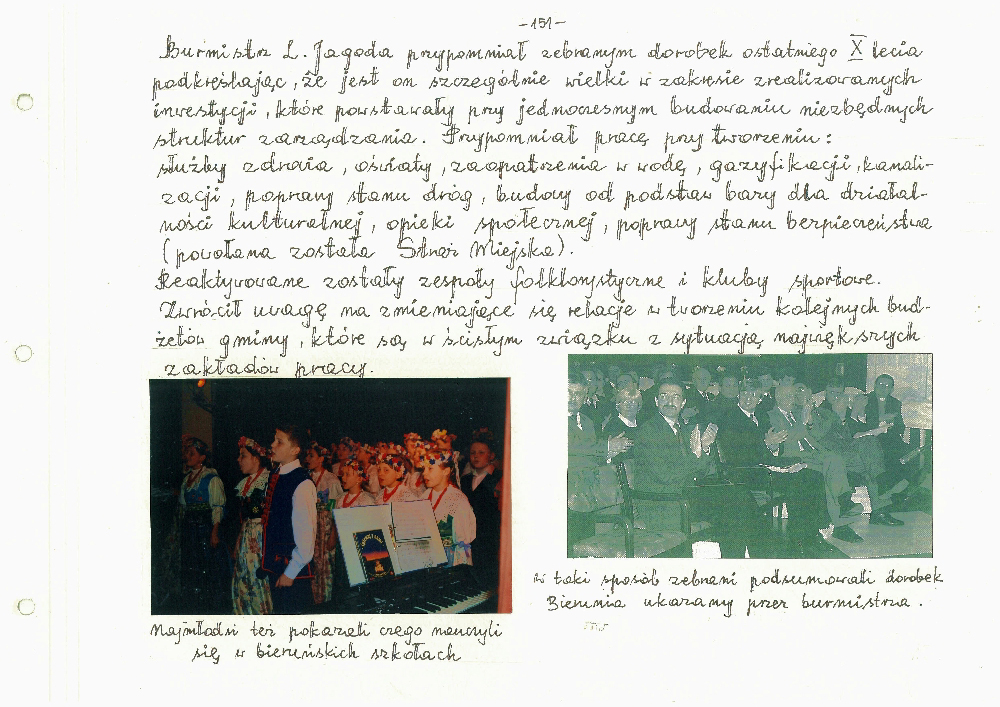 -151-
Burmistrz L. Jagoda przypomniał zebranym dorobek ostatniego X lecia
podkreślając, że jest on szczególnie wielki w zakresie zrealizowanych
inwestycji, które powstawały przy jednoczesnym budowaniu niezbędnych
struktur zarządzania. Przypomniał pracę przy tworzeniu:
służby zdrowia, oświaty, zaopatrzenia w wodę, gazyfikacji, kanali-
zacji, poprawy stanu dróg, budowy od podstaw bazy dla działal-
ności kulturalnej, opieki społecznej, poprawy stanu bezpieczeństwa
(powołana została Straż Miejska).
Reaktywowane zostały zespoły folklorystyczne i kluby sportowe.
Zwrócił uwagę na zmieniające się relacje w tworzeniu kolejnych bud-
żetów gminy, które są w ścisłym związku z sytuacją największych
zakładów pracy.
Najmłodsi też pokazali czego nauczyli
się w bieruńskich szkołach
w taki sposób zebrani podsumowali dorobek
Bierunia ukazany przez burmistrza.